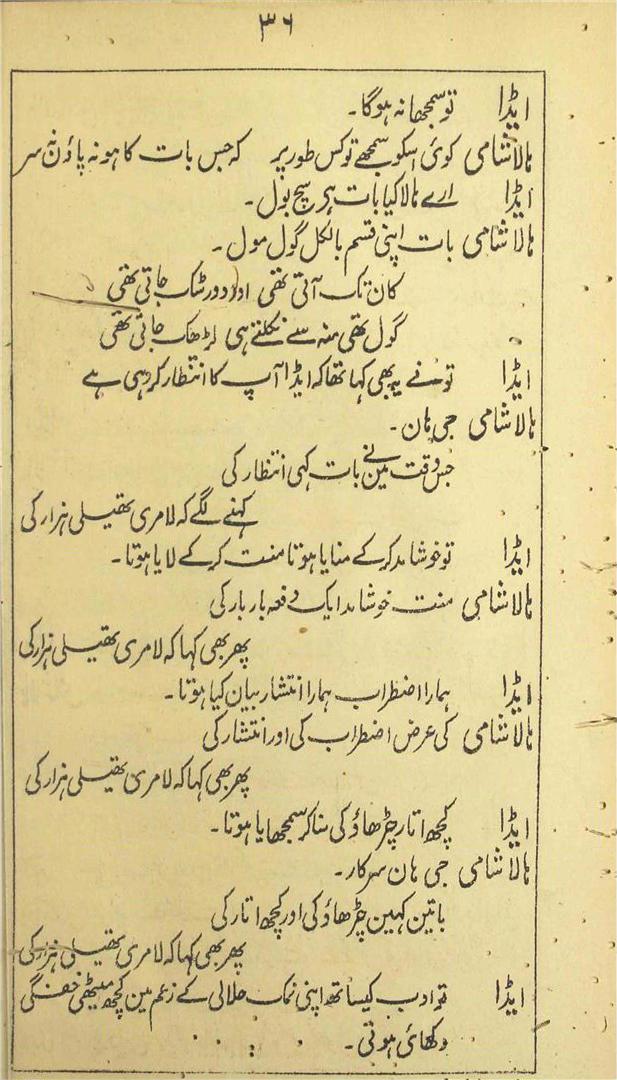 ۳۶
ایڈا تو سمجھا نہ ہوگا۔
ہالاشامی کوئی اسکو سمجھے تو کس طور پر کہ جس بات کا ہو نہ پاؤن نہ سر
ایڈا ارے ہالا کیا بات ہی سچ بول۔
ہالاشامی بات اپنی قسم بالکل گول مول۔
کان تک آتی تھی اور دور سٹک جاتی تھی
گول تھی منہ سے نکلتے ہی لڑھک جاتی تھی
ایڈا تو نے یہ بھی کہا تھا کہ ایڈا آپ کا انتظار کر رہی ہے
ہالاشامی جی ہان۔
جس وقت مین نے بات کہی انتظار کی
کہنے لگے کہ لا مری تھیلی ہزار کی
ایڈا تو خوشامد کرکے منایا ہوتا منت کرکے لایا ہوتا۔
ہالاشامی منت خوشامد ایک دفعہ بار بار کی
پھر بھی کہا کہ لا مری تھیلی ہزار کی
ایڈا ہمارا اضطراب ہمارا انتشار بیان کیا ہوتا۔
ہالاشامی کی عرض اضطراب کی اور انتشار کی
پھر بھی کہا کہ لا مری تھیلی ہزار کی
ایڈا کچھ اتار چڑھاؤ کی سنا کر سمجھایا ہوتا۔
ہالاشامی جی ہان سرکار۔
باتین کہین چڑھاؤ کی اور کچھ اتار کی
پھر بھی کہا کہ لا مری تھیلی ہزار کی
ایڈا تو ادب کیساتھ اپنی نمک حلالی کے زعم مین کچھ میٹھی خفگی
دکھائی ہوتی۔